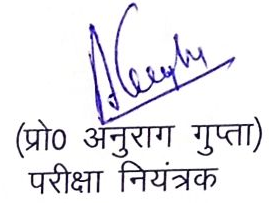 (प्रो0 अनुराग गुप्ता)
परीक्षा नियंत्रक